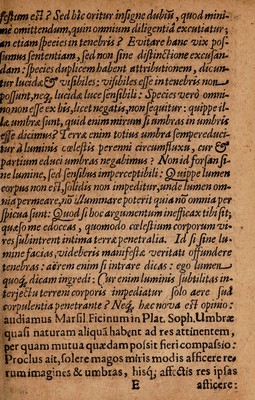 festum est? Sed hic oritur insigne dubiũ, quod mini-
me omittendum, quin omnium diligentiâ excutiatur;
an etiam species in tenebris? Evitare hanc vix pos-
sumus sententiam, sed non sine distinctione excusan-
dam: species duplicem habent attributionem, dicun-
tur lucidæ & visibiles: visibiles esse in tenebris non
possunt, neq; lucidæ luce sensibili: Species verò omni-
no non esse ex his, licet negatis, non sequitur: quippe il-
læ umbræ sunt, quid enim mirum si umbras in umbris
esse dicimus? Terræ enim totius umbra semper educi-
tur à luminis cœlestis perenni circumfluxu, cur &
partium educi umbras negabimus? Non id forsan si-
ne lumine, sed sensibus imperceptibili: Quippe lumen
corpus non est, solidis non impeditur, unde lumen om-
nia permeare, nõ illumnare poterit quia nõ omnia per
spicua sunt: Quod si hoc argumentum inefficax tibi sit;
quæso me edoceas, quomodo cœlestium corporum vi-
res subintrent intima terræ penetralia. Id si sine lu-
mine facias, videberis manifestæ veritati offundere
tenebras: aërem enim si intrare dicas: ego lumen
quoq; dicam ingredi: Cur enim luminis subtilitas in-
terjectu terreni corporis impediatur solo aere suâ
corpulentia penetrante? Neq; hæc nova est opinio:
audiamus Marsil Ficinum in Plat. Soph. Umbræ
quasi naturam aliquã habent ad res attinentem,
per quam mutua quædam possit fieri compassio:
Proclus ait, solere magos miris modis afficere re-
rum imagines & umbras, hisq; affectis res ipsas
E afficere: